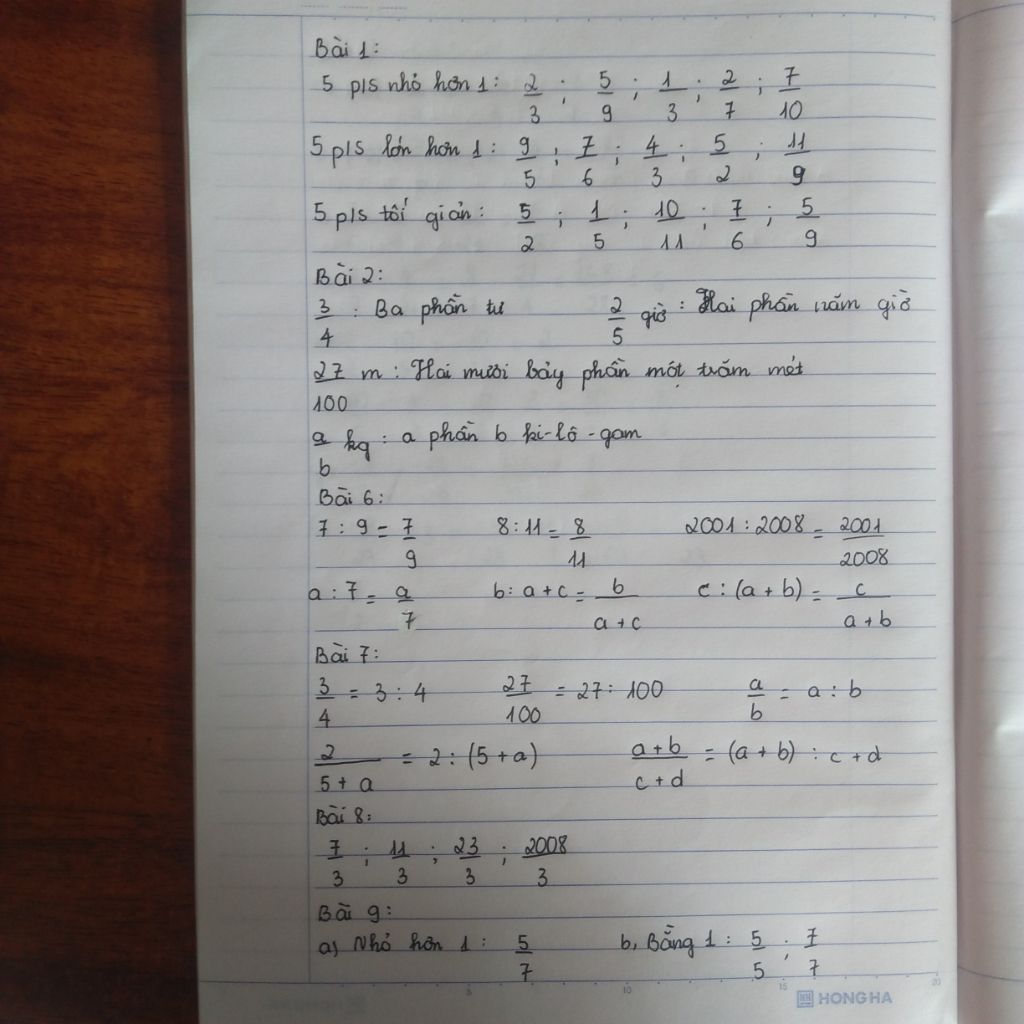 Bài 1:
5 p/s nhỏ hơn 1: 2/3 ; 5/9 ; 1/3 ; 2/7 ; 7/10
5 p/s lớn hơn 1: 9/5 ; 7/6 ; 4/3 ; 5/2 ; 11/9
5 p/s tối giản: 5/2 ; 1/5 ; 10/11 ; 7/6 ; 5/9
Bài 2:
3/4 : Ba phần tư 2/5 giờ : Hai phần năm giờ
27/100 m : Hai mươi bảy phần một trăm mét
a/b kg : a phần b ki-lô-gam
Bài 6:
7 : 9 = 7/9 8 : 11 = 8/11 2001 : 2008 = 2001/2008
a : 7 = a/7 b : a + c = b/(a + c) c : (a + b) = c/(a + b)
Bài 7:
3/4 = 3 : 4 27/100 = 27 : 100 a/b = a : b
2/(5 + a) = 2 : (5 + a) (a + b)/(c + d) = (a + b) : c + d
Bài 8:
7/3 ; 11/3 ; 23/3 ; 2008/3
Bài 9:
a) Nhỏ hơn 1 : 5/7 b, Bằng 1 : 5/5 ; 7/7
5 10 15 20
HONG HA